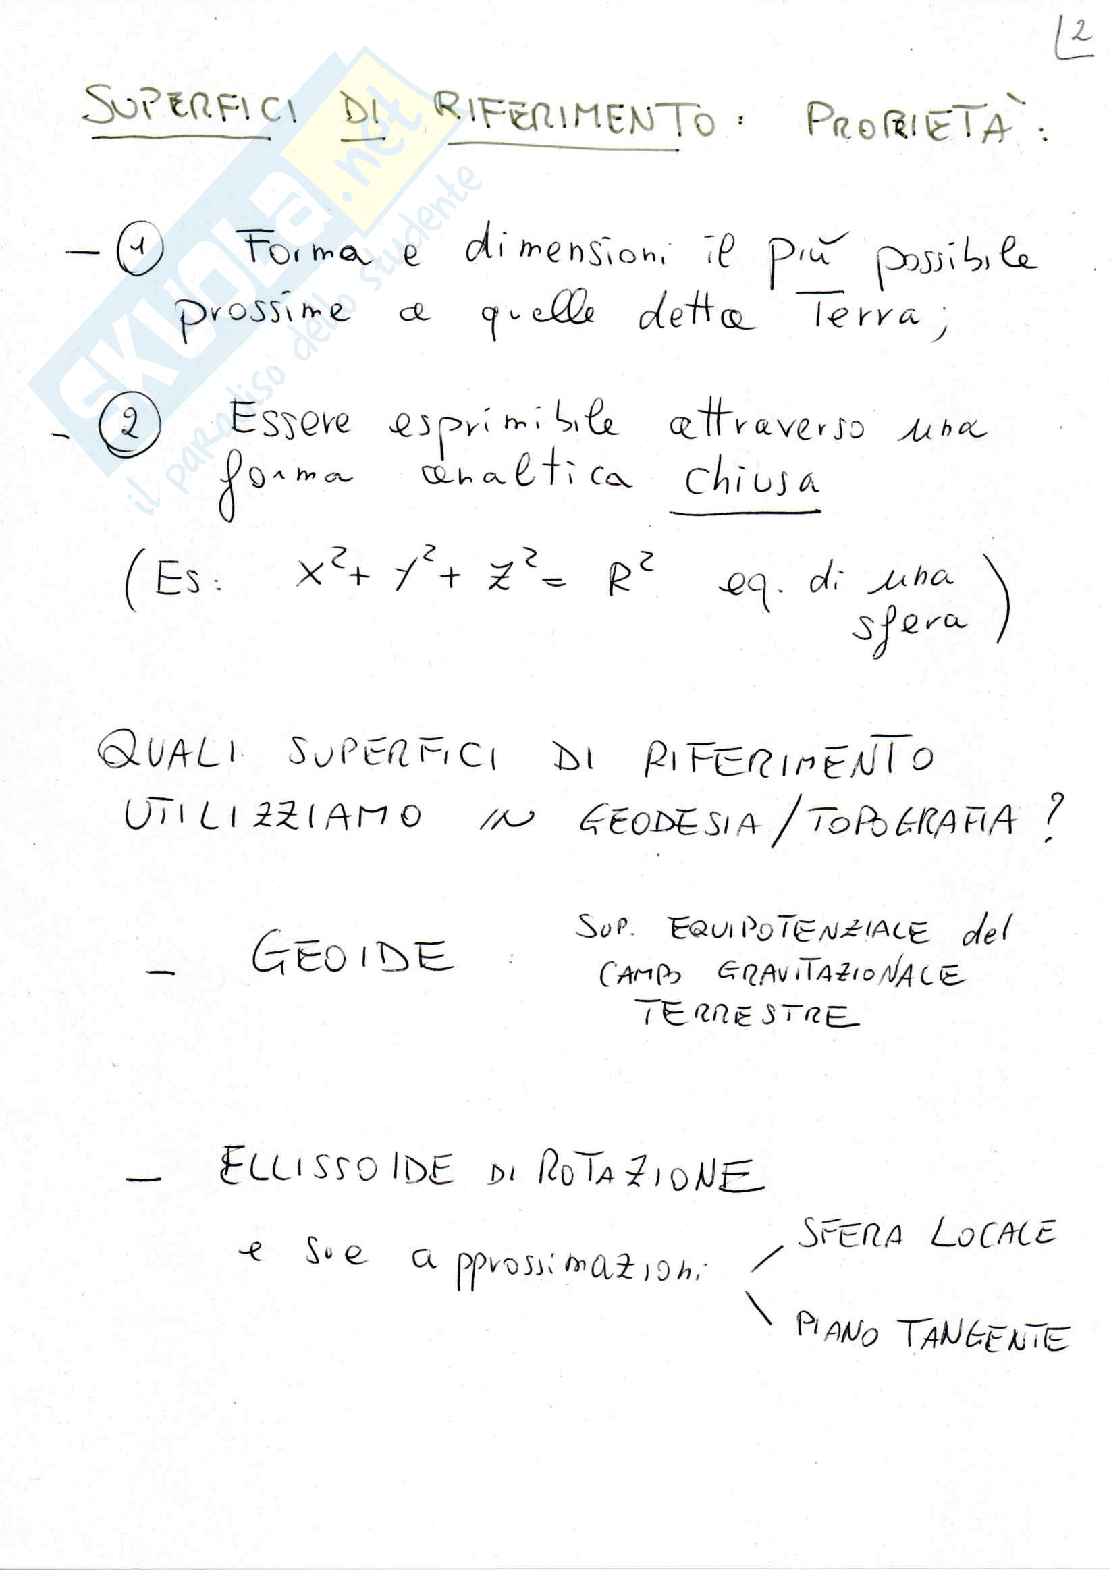 2
SUPERFICI DI RIFERIMENTO: PRORIETÀ:
- 1 Forma e dimensioni il più possibile
prossime a quelle della Terra;
- 2 Essere esprimibile attraverso una
forma analtica chiusa
(Es: x²+ y²+ z²= R² eq. di una
sfera)
QUALI SUPERFICI DI RIFERIMENTO
UTILIZZIAMO IN GEODESIA/TOPOGRAFIA?
- GEOIDE : SUP. EQUIPOTENZIALE del
CAMPO GRAVITAZIONALE
TERRESTRE
- ELLISSOIDE DI ROTAZIONE
e sue approssimazioni
SFERA LOCALE
PIANO TANGENTE
SKUOLA.net
il paradiso dello studente